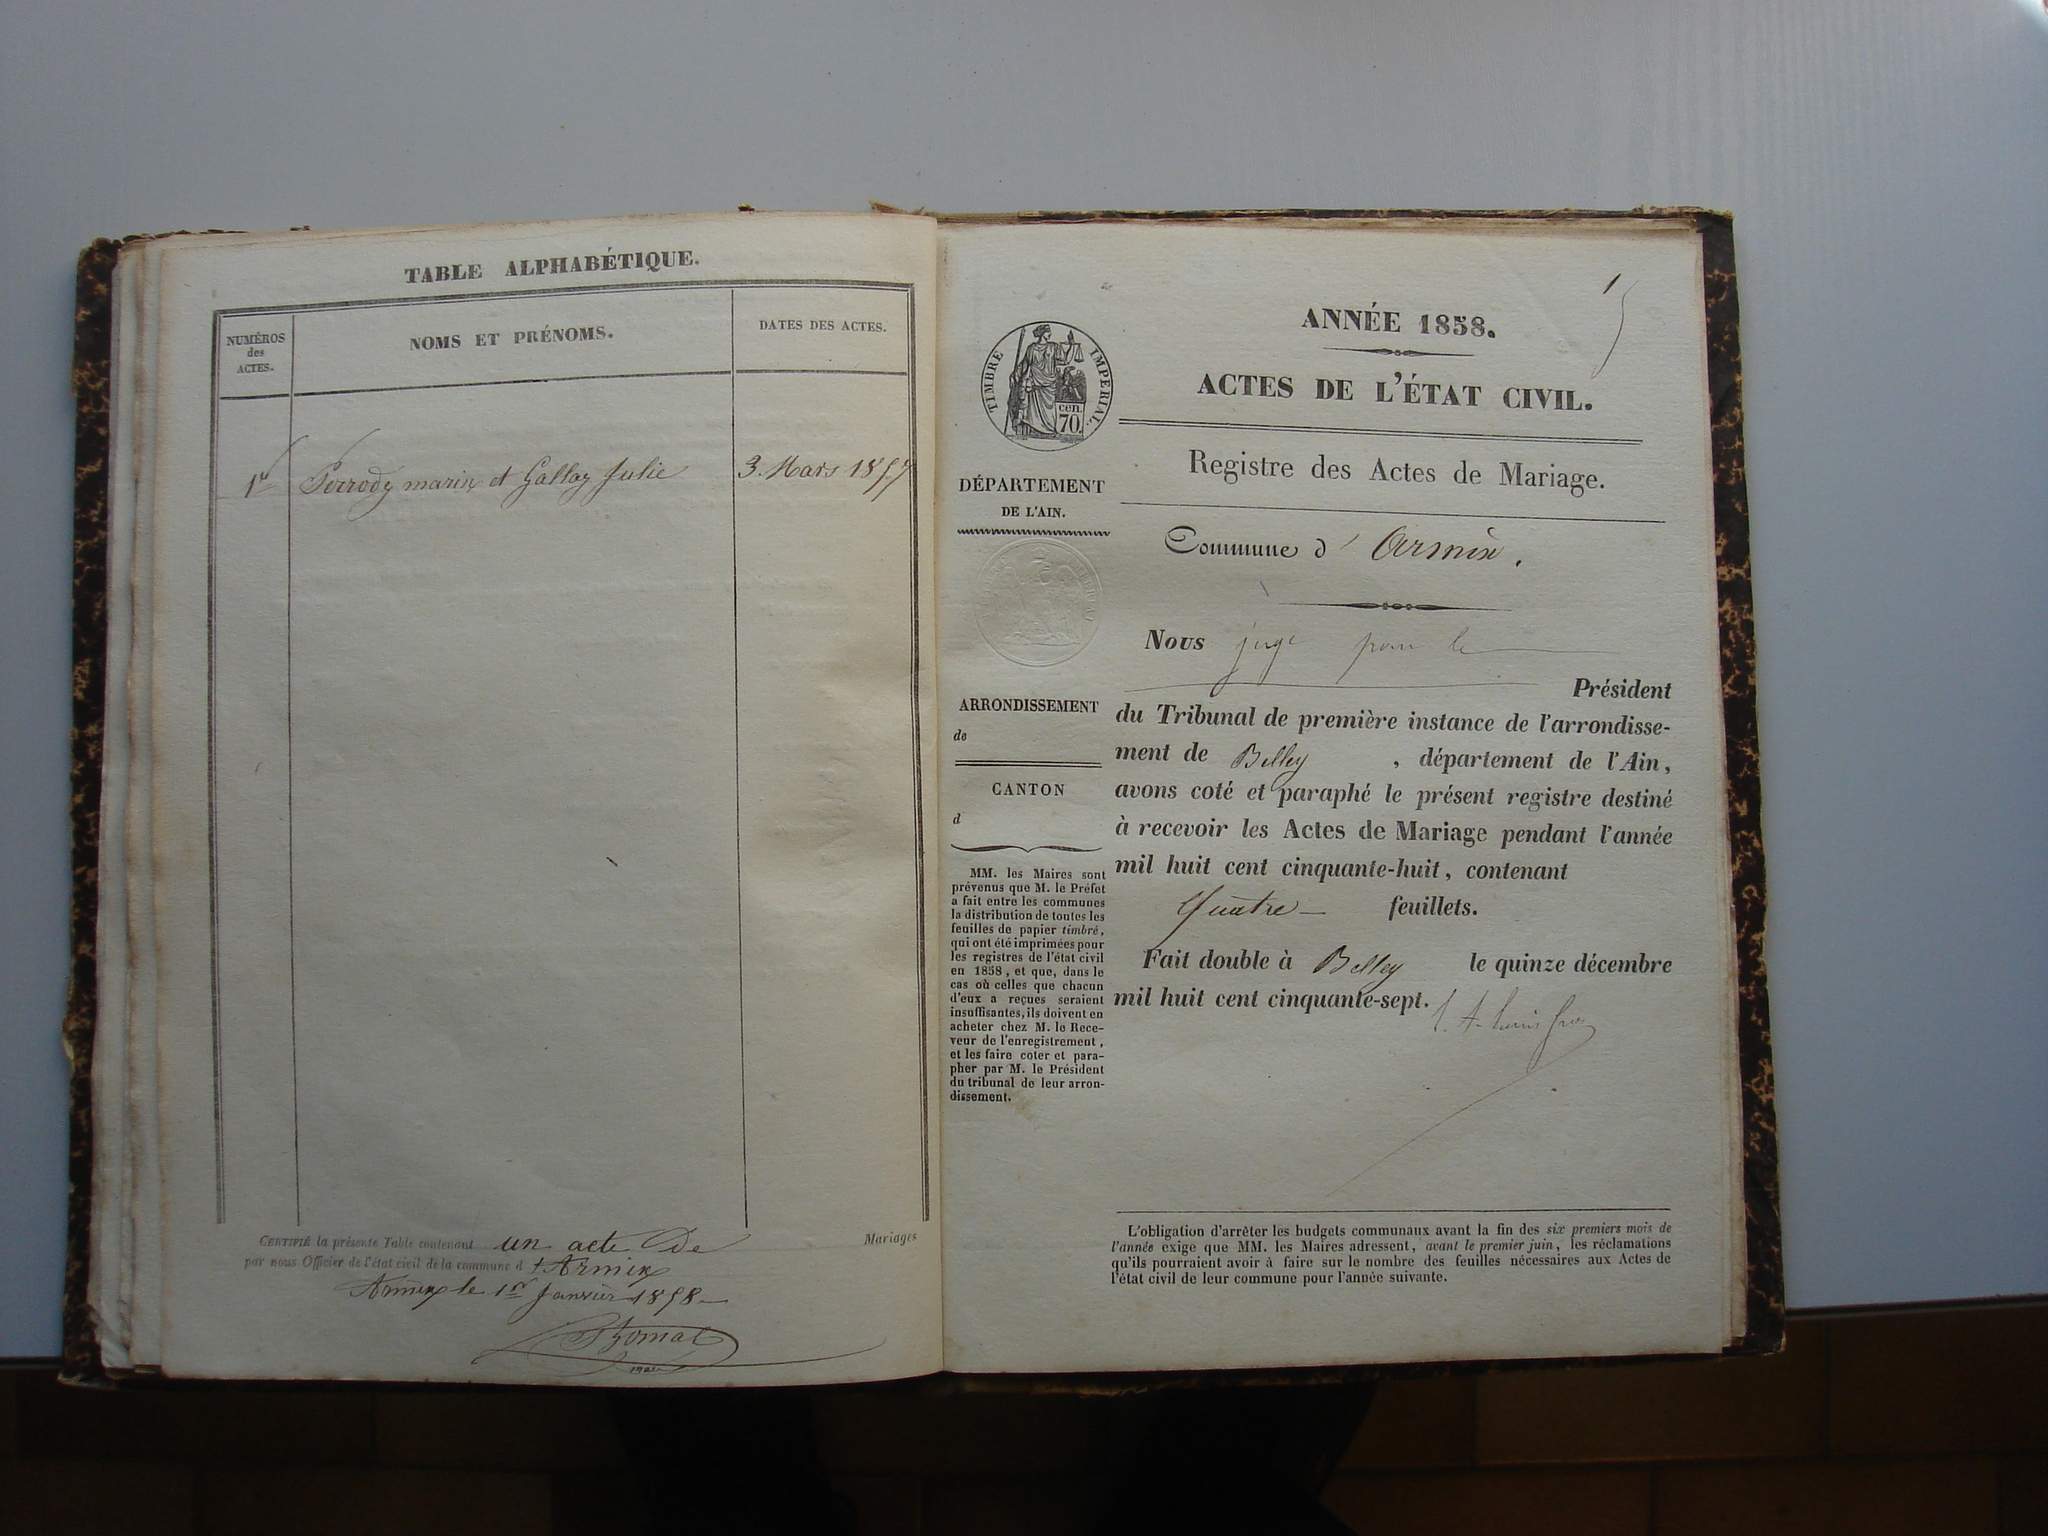 TABLE ALPHABÉTIQUE.
NUMÉROS
des
ACTES.
NOMS ET PRÉNOMS.
DATES DES ACTES.
1er Perrody marin et Gallay Julie 3. Mars 1857
CERTIFIÉ la présente Table contenant un acte De Mariages
par nous Officier de l'état civil de la commune d'Armix
Armix le 1er Janvier 1858
maire
1
TIMBRE IMPERIAL.
cen.
70.
DÉPARTEMENT
DE L'AIN.
ARRONDISSEMENT
de
CANTON
d
MM. les Maires sont
prévenus que M. le Préfet
a fait entre les communes
la distribution de toutes les
feuilles de papier timbré,
qui ont été imprimées pour
les registres de l'état civil
en 1858, et que, dans le
cas où celles que chacun
d'eux a reçues seraient
insuffisantes, ils doivent en
acheter chez M. le Rece-
veur de l'enregistrement,
et les faire coter et para-
pher par M. le Président
du tribunal de leur arron-
dissement.
ANNÉE 1858.
ACTES DE L'ÉTAT CIVIL.
Registre des Actes de Mariage.
Commune d'Armix.
Nous juge pour le
Président
du Tribunal de première instance de l'arrondisse-
ment de Belley, département de l'Ain,
avons coté et paraphé le présent registre destiné
à recevoir les Actes de Mariage pendant l'année
mil huit cent cinquante-huit, contenant
quatre feuillets.
Fait double à Belley le quinze décembre
mil huit cent cinquante-sept.
L'obligation d'arrêter les budgets communaux avant la fin des six premiers mois de
l'année exige que MM. les Maires adressent, avant le premier juin, les réclamations
qu'ils pourraient avoir à faire sur le nombre des feuilles nécessaires aux Actes de
l'état civil de leur commune pour l'année suivante.